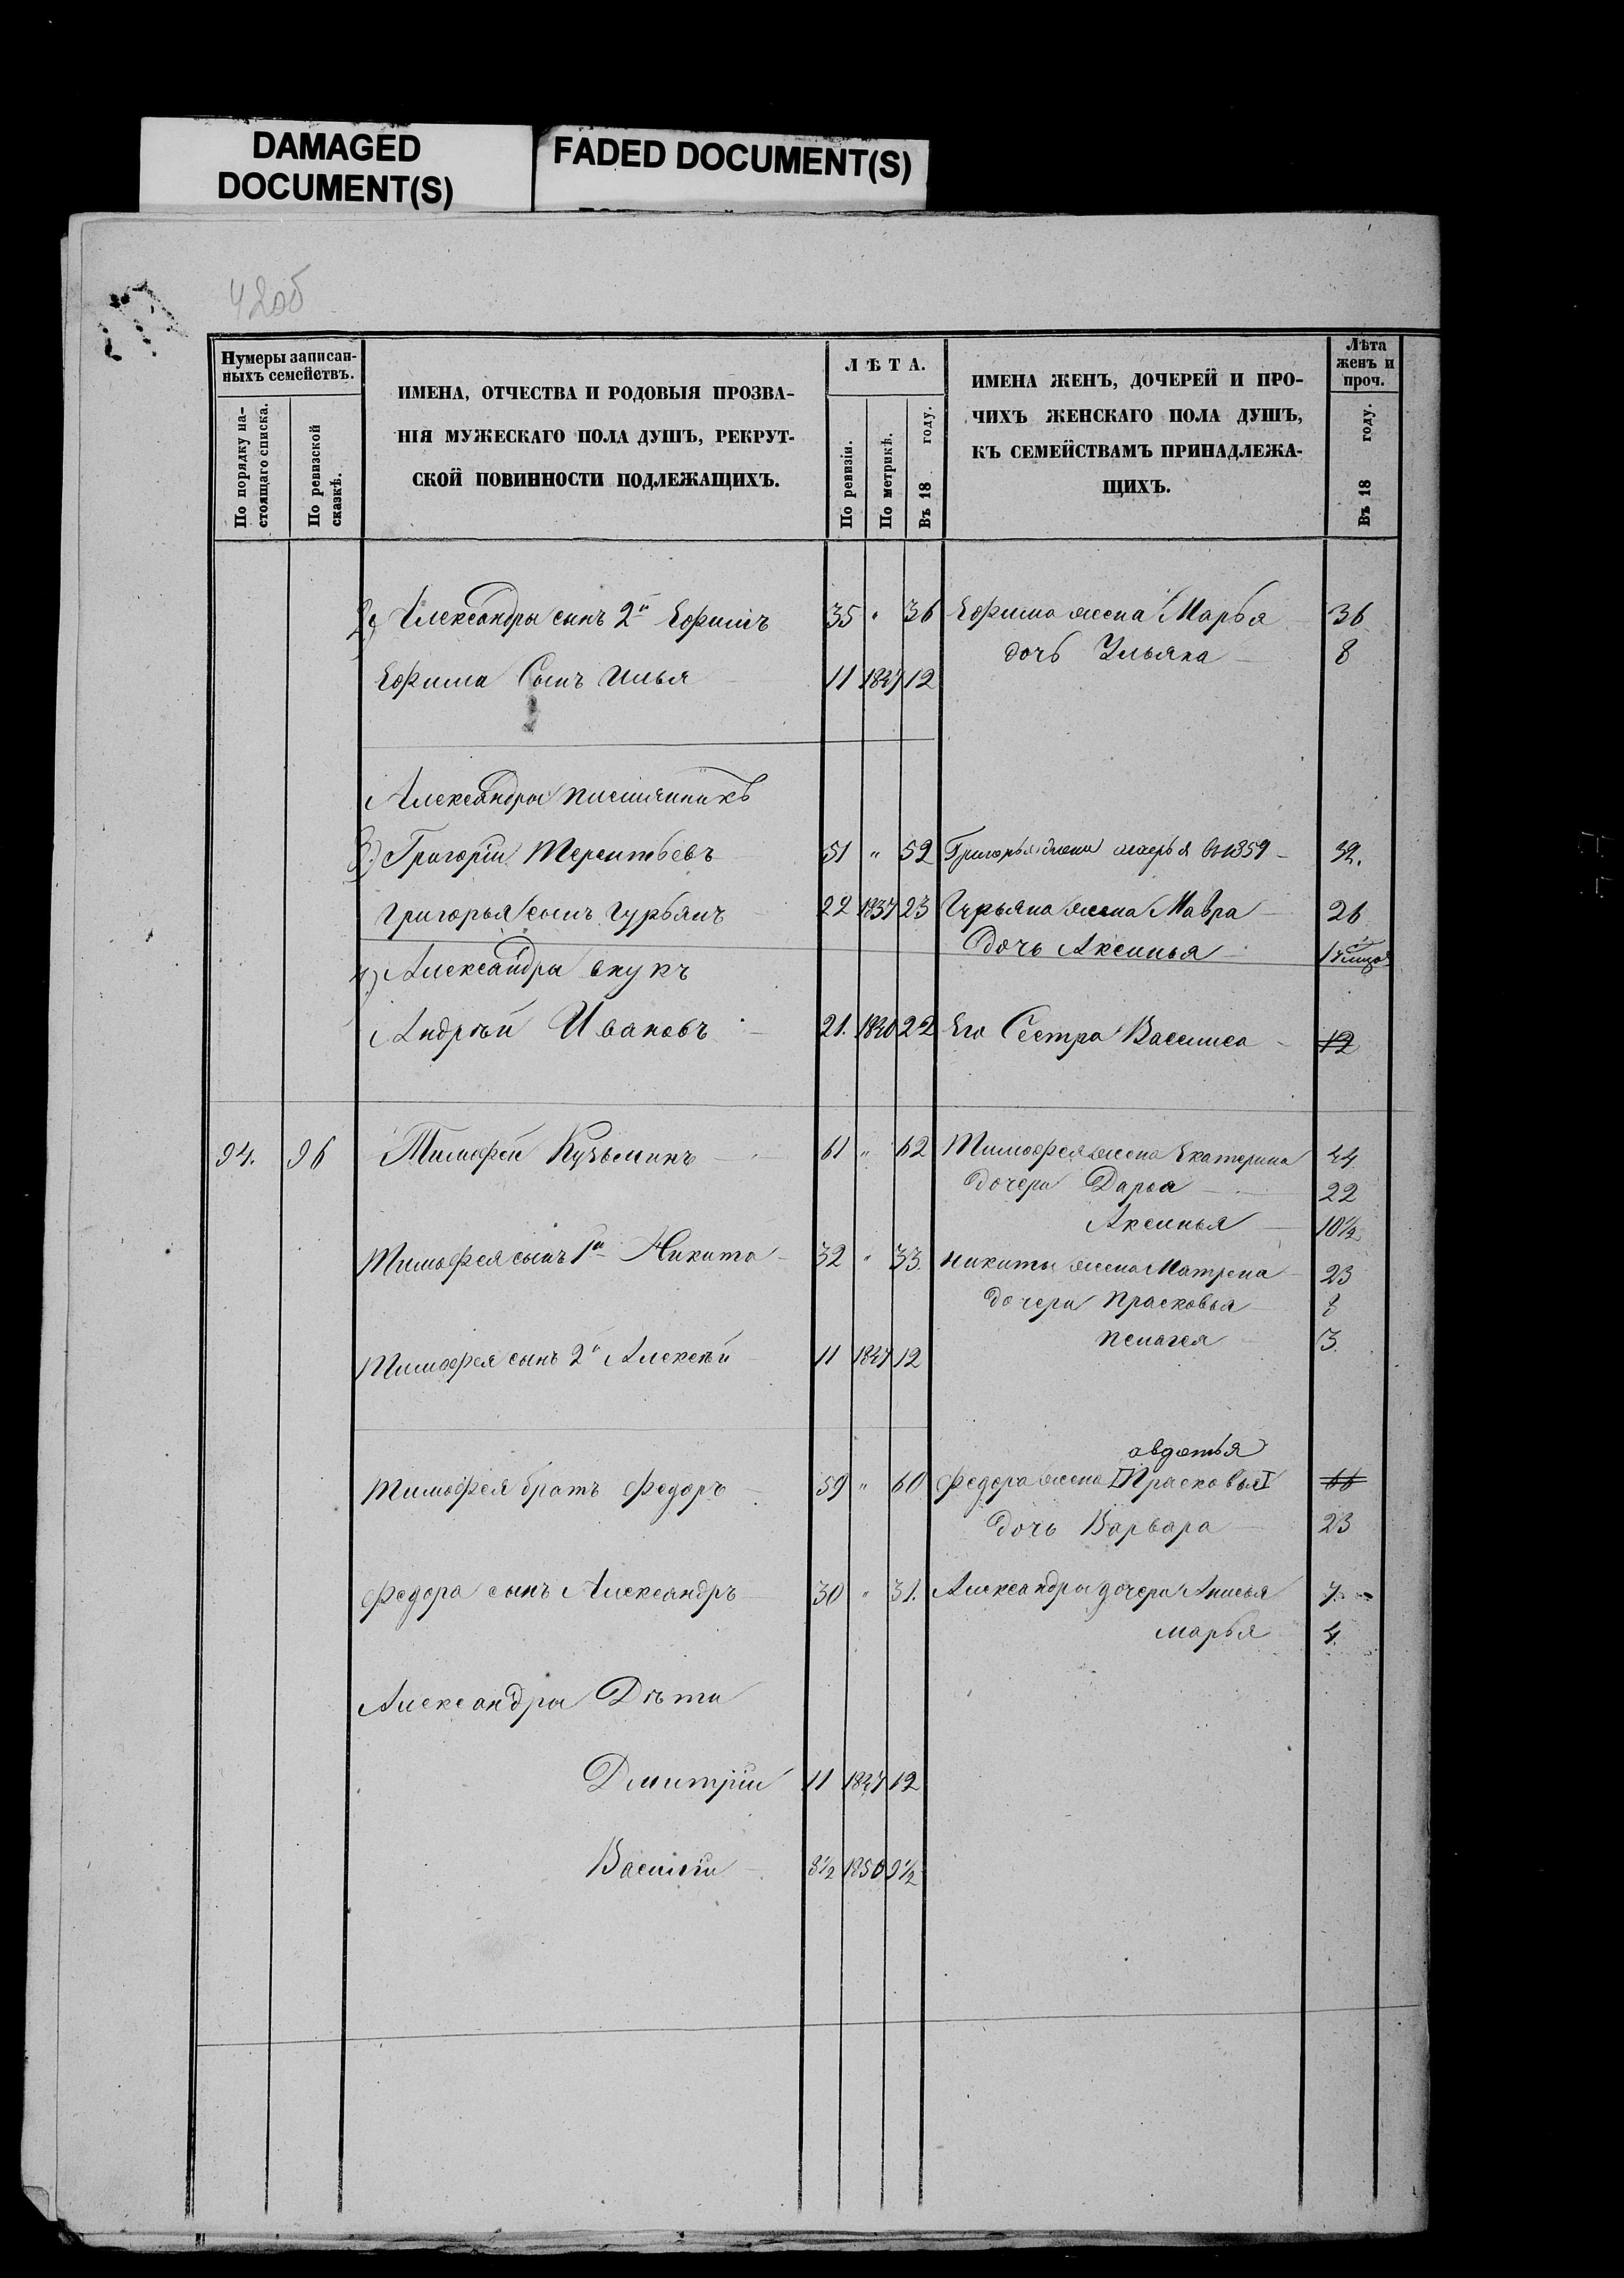 DAMAGED
DOCUMENT(S)
FADED DOCUMENT(S)
42об
Нумеры записан-
ныхъ семействъ.
По порядку на-
стоящаго списка.
По ревизской
сказкѣ.
ИМЕНА, ОТЧЕСТВА И РОДОВЫЯ ПРОЗВА-
НІЯ МУЖЕСКАГО ПОЛА ДУШЪ, РЕКРУТ-
СКОЙ ПОВИННОСТИ ПОДЛЕЖАЩИХЪ.
ЛѢТА.
По ревизіи.
По метрикѣ.
Въ 18 году.
ИМЕНА ЖЕНЪ, ДОЧЕРЕЙ И ПРО-
ЧИХЪ ЖЕНСКАГО ПОЛА ДУШЪ,
КЪ СЕМЕЙСТВАМЪ ПРИНАДЛЕЖА-
ЩИХЪ.
Лѣта
женъ и
проч.
Въ 18 году.
2) Александра сынъ 2й Ефимъ 35 " 36 Ефима жена Марья 36
дочь Ульяна 8
Ефима Сынъ Илья 11 1847 12
Александра
3) Григорій Терентьевъ 51 " 52 Григорья жена 1859 32.
Григорья сынъ Гурьянъ 22 1837 23 Гурьяна жена Мавра 26
дочь Аксинья
4) Александра внукъ
Андрей Ивановъ 21. 22 Его Сестра Васса 12
94. 96 Тимофей Кузьминъ 61 " 62 Тимофея жена Екатерина 44
дочери Дарья 22
Аксинья 10½
Тимофея сынъ 1й Никита 32 " 33. Никиты жена Матрена 23
дочери Прасковья 8
Пелагея 3.
Тимофея сынъ 2й Алексѣй 11 1847 12
авдотья
Тимофея братъ Федоръ 59 " 60 Федора жена Прасковья 66
дочь Варвара 23
Федора сынъ Александръ 30 " 31. Александра дочери Анисья 7.
Марья 4.
Александра Дѣти
Дмитрій 11 1847 12
Василій 8½ 1850 9½